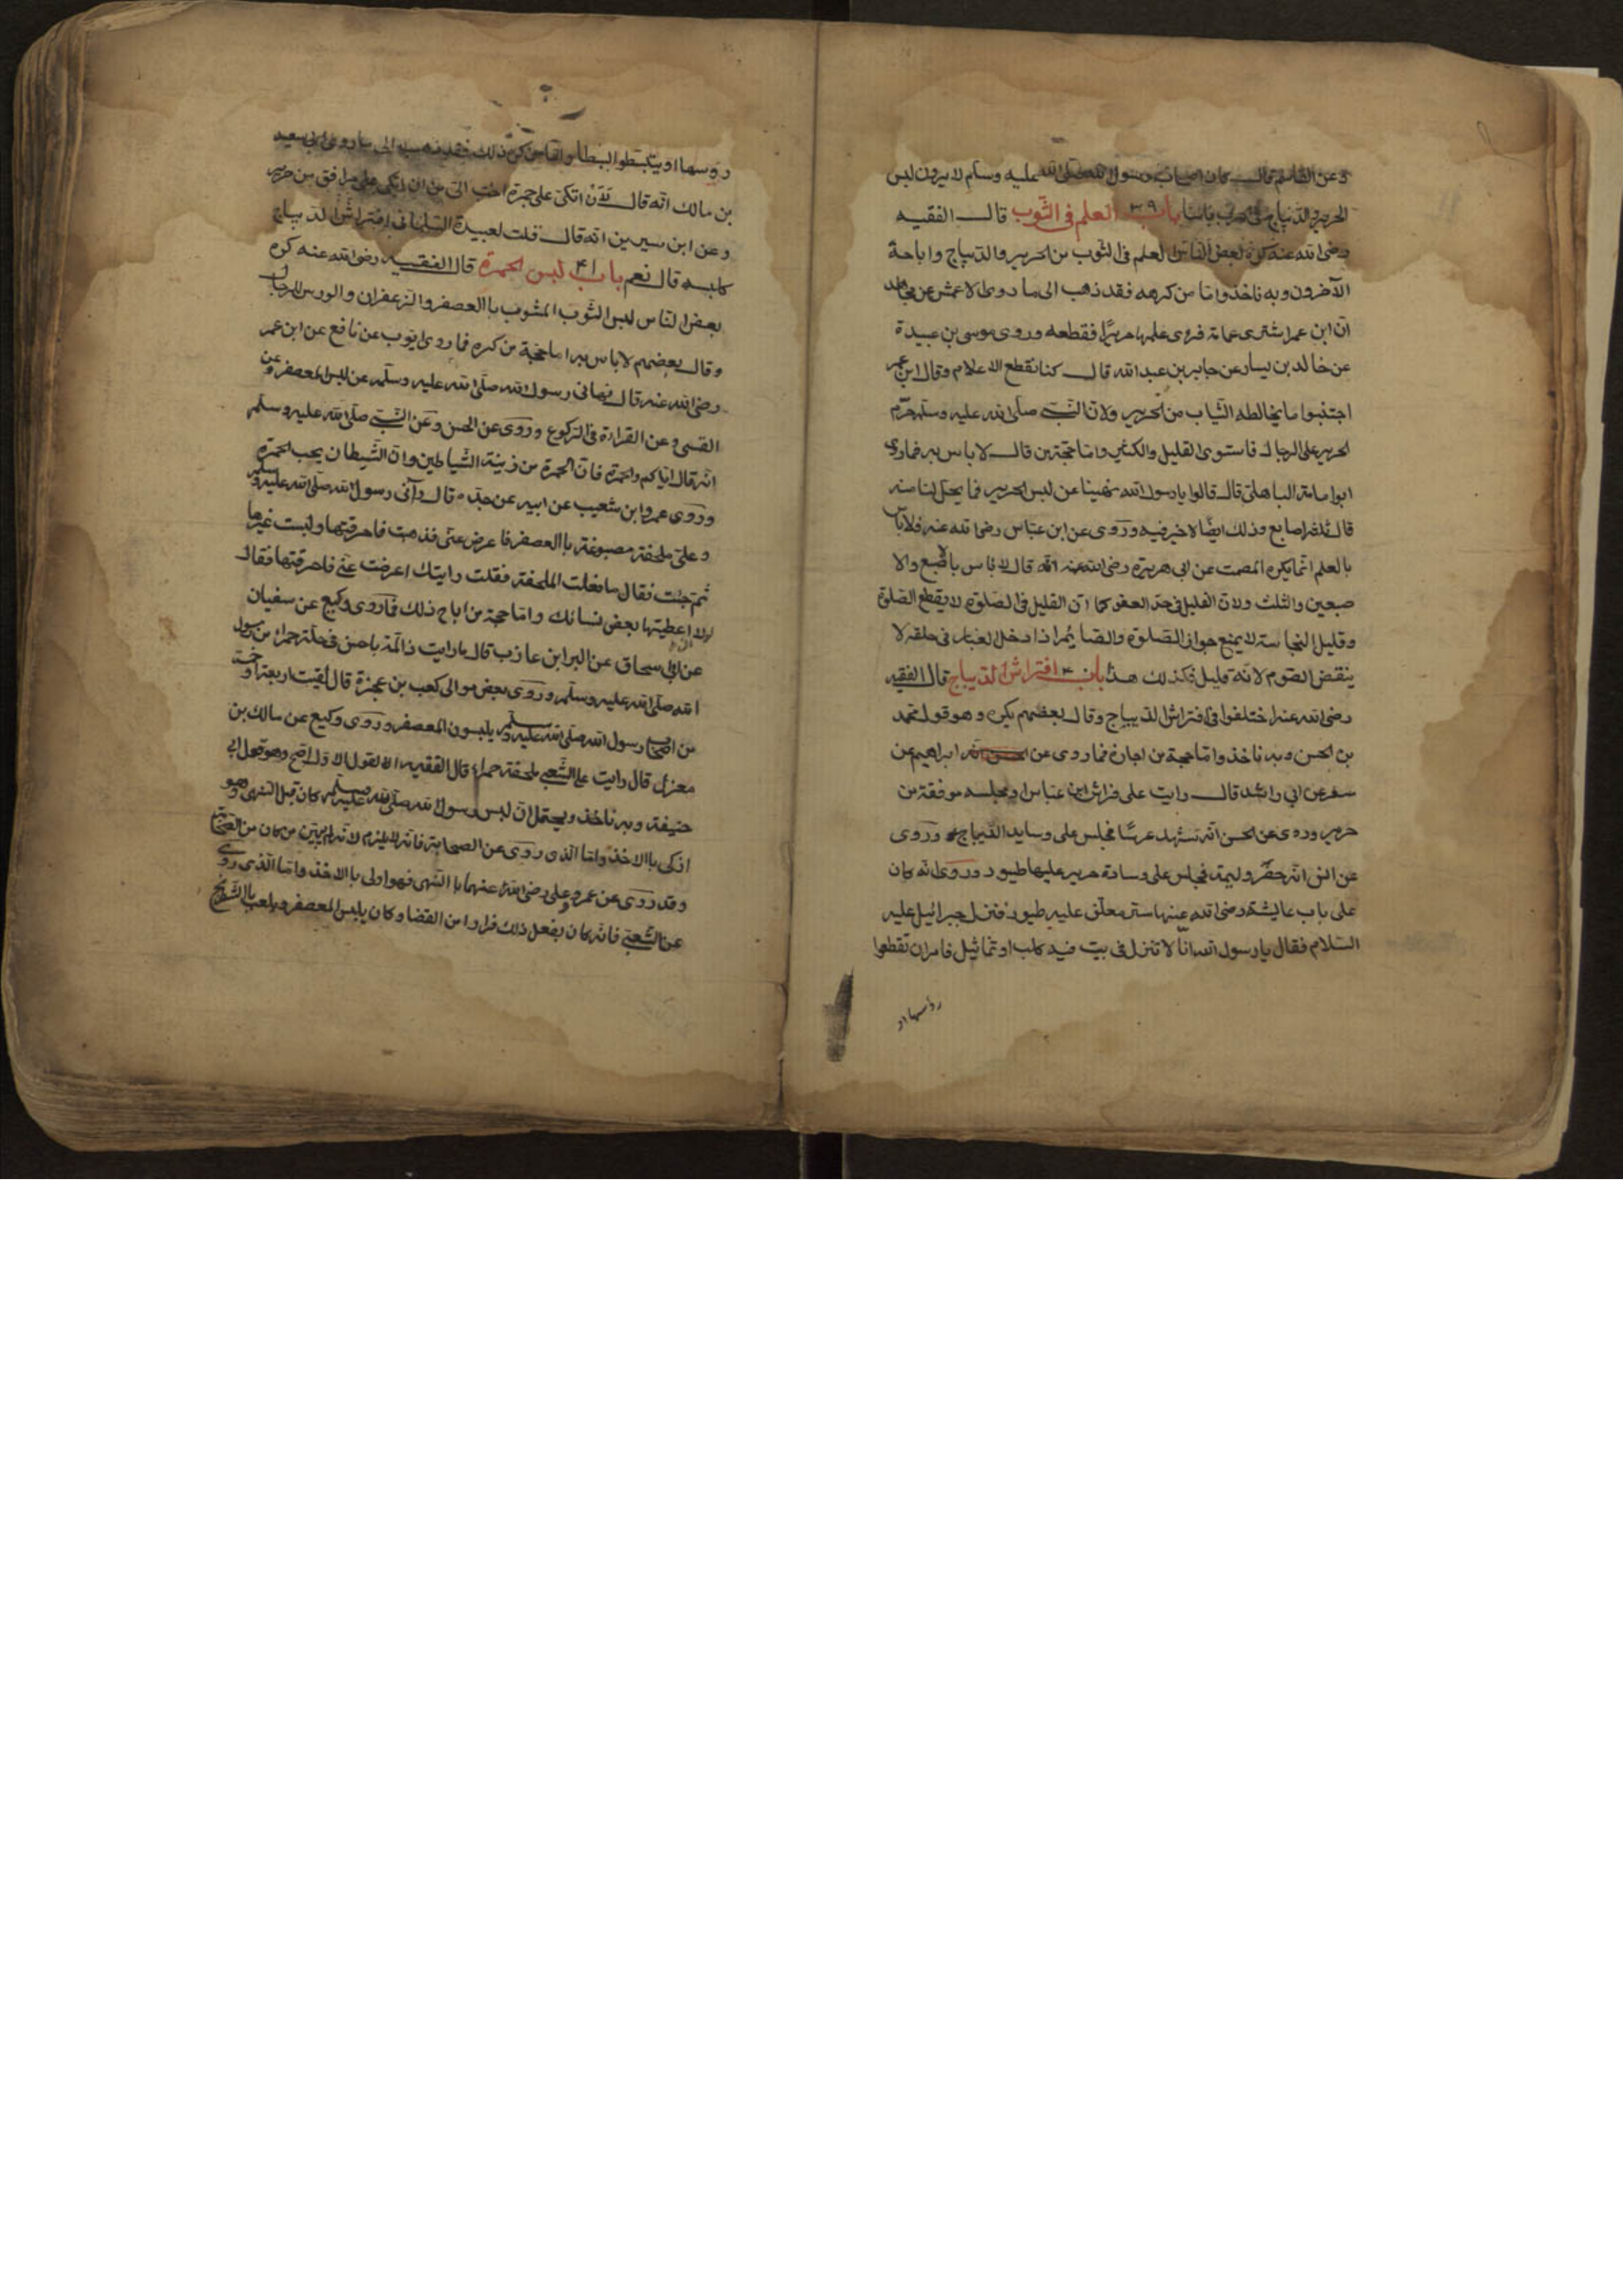 وعن القاسم قال كان اصحاب رسول الله صلى الله عليه وسلم لا يرون لبس
الحرير والديباج فى الحرب باسا باب ٣٩ العلم فى الثوب قال الفقيه
رضى الله عنه كره بعض الناس العلم فى الثوب من الحرير والديباج واباحة
الآخرون وبه ناخذ واما من كرهه فقد ذهب الى ما روى الاعمش عن مجاهد
ان ابن عمر اشترى عمامة فرؤى علمها حريرًا فقطعه وروى موسى بن عبيدة
عن خالد بن يسار عن جابر بن عبد الله قال كنا نقطع الاعلام وقال ابن عمر
اجتنبوا ما يخالطه الثياب من الحرير ولان النبى صلى الله عليه وسلم حرّم
الحرير على الرجال فاستوى القليل والكثير واما حجة من قال لا باس به فما روى
ابوا مامة الباهلى قال قالوا يا رسول الله نهينا عن لبس الحرير فما يحل لنا منه
قال ثلثة اصابع وذلك ايضًا لا خير فيه وروى عن ابن عباس رضى الله عنه فلا باس
بالعلم انما يكره المصمت عن ابى هريرة رضى الله عنه انه قال لا باس باصبع والا
صبعين والثلث ولان القليل فى حد العفو كما ان القليل فى الصلوة لا يقطع الصلوة
وقليل النجاسة لا يمنع جواز الصلوة والصايم اذا دخل الغبار فى حلقه لا
ينقض الصوم لانه قليل فكذلك هذا باب ٤٠ افتراش الديباج قال الفقيه
رضى الله عنه اختلفوا فى افتراش الديباج وقال بعضهم يكره وهو قول محمد
بن الحسن وبه ناخذ واما حجة من اجازه فما روى عن ابراهيم عن
سعر عن ابى راشد قال رايت على فراش ابن عباس او مجلسه موفقة من
حرير وروى عن الحسن انه شهد عرسًا فجلس على وسايد الديباج وروى
عن انس انه حضر وليمة فجلس على وسادة حرير عليها طيور وروى انه كان
على باب عايشة رضى الله عنها ستر معلق عليه طيور فنزل جبرائيل عليه
السلام فقال يا رسول الله انّا لا تنزل فى بيت فيه كلب او تماثيل فامران تقطعوا
رؤسها او
رؤسها او يتبسطوا البسطا واما من كره ذلك فقد ذهب الى ما روى ابى سعيد
بن مالك انه قال لان اتكئ على جمرة احب الى من ان اتكئ على مرافق من حرير
وعن ابن سيرين انه قال قلت لعبيدة السلمانى افتراش الديباج
كلبسه قال نعم باب ٤١ لبس الحمرة قال الفقيه رضى الله عنه كره
بعض الناس لبس الثوب المشوب بالعصفر والزعفران والورس للرجال
وقال بعضهم لا باس به اما حجة من كره فما روى ايوب عن نافع عن ابن عمر
رضى الله عنه قال نهانى رسول الله صلى الله عليه وسلم عن لبس المعصفر وعن
القسى وعن القراءة فى الركوع وروى عن الحسن وعن النبى صلى الله عليه وسلم
انه قال اياكم والحمرة فان الحمرة من زينة الشياطين وان الشيطان يحب الحمرة
وروى عمرو ابن شعيب عن ابيه عن جده قال رآنى رسول الله صلى الله عليه وسلم
وعلىّ ملحفة مصبوغة باالعصفر فاعرض عنى فذهبت فاحرقتها ولبست غيرها
ثم جئت فقال ما فعلت الملحفة فقلت رايتك اعرضت عنى فاحرقتها فقال
لولا اعطيتها بعض نسائك واما حجة من اباح ذلك فما روى وكيع عن سفيان
عن ابى اسحاق عن البر ابن عازب قال ما رايت ذالمة باحسن فى حلة حمراء من رسول
الله صلى الله عليه وسلم وروى بعض موالى كعب بن عجرة قال لقيت اربعة او خمسة
من اصحاب رسول الله صلى الله عليه وسلم يلبسون المعصفر وروى وكيع عن مالك بن
مغزل قال رايت على الشعبى ملحفة حمراء قال الفقيه القول الاول اصح وهو قول ابى
حنيفة وبه ناخذ ويحتمل ان لبس رسول الله صلى الله عليه وسلم كان قبل النهى وهو
ازكى باالاخذ واما الذى روى عن الصحابة فانه لا يلزم لانه لم يبين من كان من الصحابة
وقد روى عن عمر وعلى رضى الله عنهما باالنهى فهو اولى باالاخذ واما الذى روى
عن الشعبى فانه كان يفعل ذلك فرارا من القضا وكان يلبس المعصفر ويلعب باالشطرنج